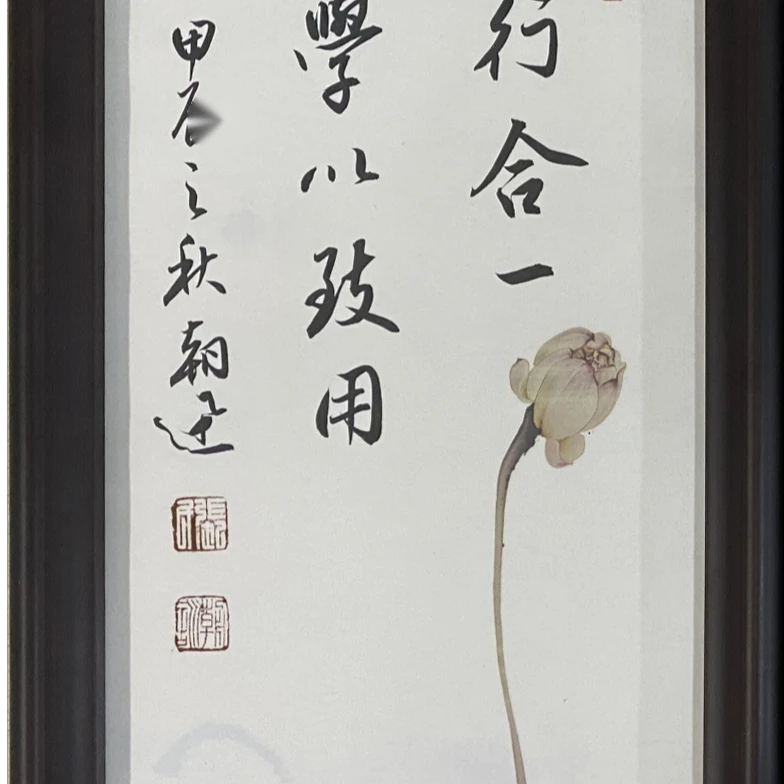 行合一
學以致用
甲辰之秋